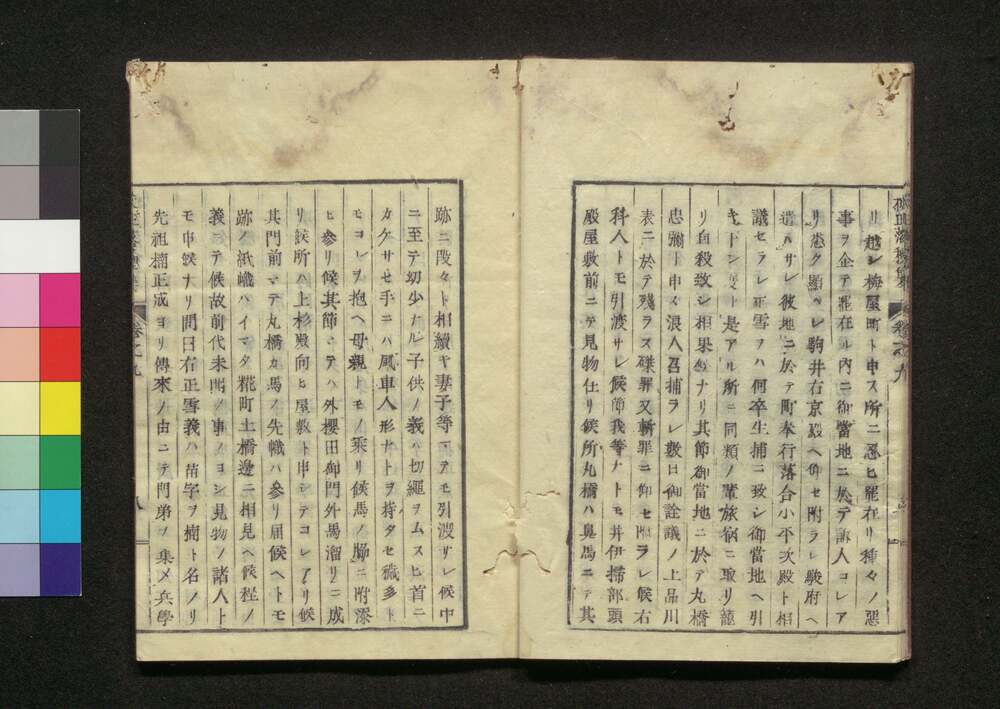 リ越シ梅屋町ト申ス所ニ忍ヒ罷在リ種々ノ惡
事ヲ企テ罷在ル内ニ御當地ニ於テ訴人コレア
リ悉ク顯ハレ駒井右京殿ヘ仰セ附ラレ駿府ヘ
遣ハサレ彼地ニ於テ町奉行落合小平次殿ト相
議セラレ正雪ヲハ何卒生捕ニ致シ御當地ヘ引
キトント是アル所ニ同類ノ輩旅宿ニ取リ籠
リ自殺致シ相果タナリ其節御當地ニ於テ丸橋
忠彌ト申ス浪人召捕ラレ數日御詮議ノ上品川
表ニ於テ殘ラス磔罪又斬罪ニ仰セ附ラレ候右
科人トモ引渡サレ候節我等ナトモ井伊掃部頭
殿屋敷前ニテ見物仕リ候所丸橋ハ鼻馬ニテ其
跡ニ段々ト相續キ妻子等ニアモ引渡サレ候中
ニ至テ幼少ナル子供ノ義ハ切繩ヲムスヒ首ニ
カケサセ手ニハ風車人形ナトヲ持タセ穢多ト
モコレヲ抱ヘ母親トモノ乘リ候馬ノ脇ニ附添
ヒ參リ候其節ニテハ外櫻田御門外馬溜リニ成
リ候所ハ上杉殿向ヒ屋敷ト申シテコレアリ候
其門前マテ丸橋カ馬ノ先幟ハ參リ届候ヘトモ
跡ノ紙幟ハイマタ糀町土橋邊ニ相見ヘ候程ノ
義ニテ候故前代未聞ノ事ノヨシ見物ノ諸人ト
モ申候ナリ問曰右正雪義ハ苗字ヲ楠ト名ノリ
先祖楠正成ヨリ傳來ノ由ニテ門弟ヲ集メ兵學